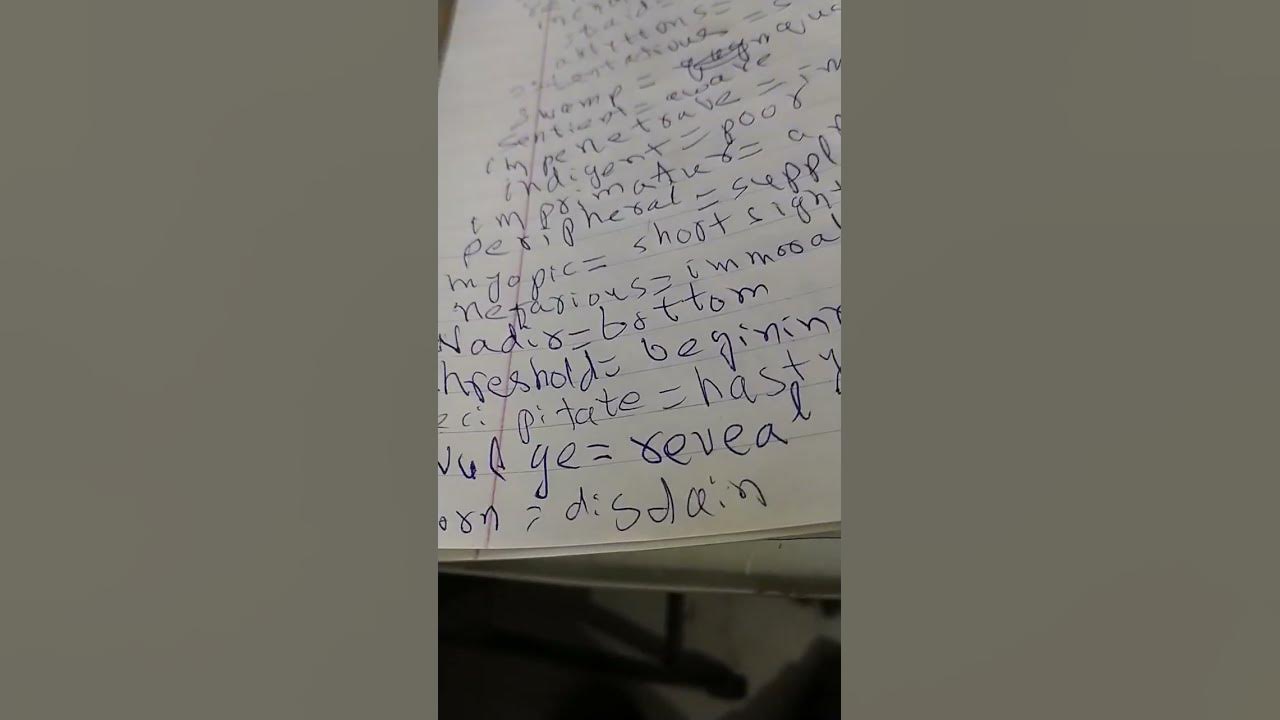 swamp =
sentient = aware
impenetrabe = in
indigent = poor
imprimatur = a
peripheral = suppl
myopic = short sight
nefarious = immoral
Nadir = bottom
hreshold = begining
eci pitate = hasty
vul ge = reveal
orn = disdain